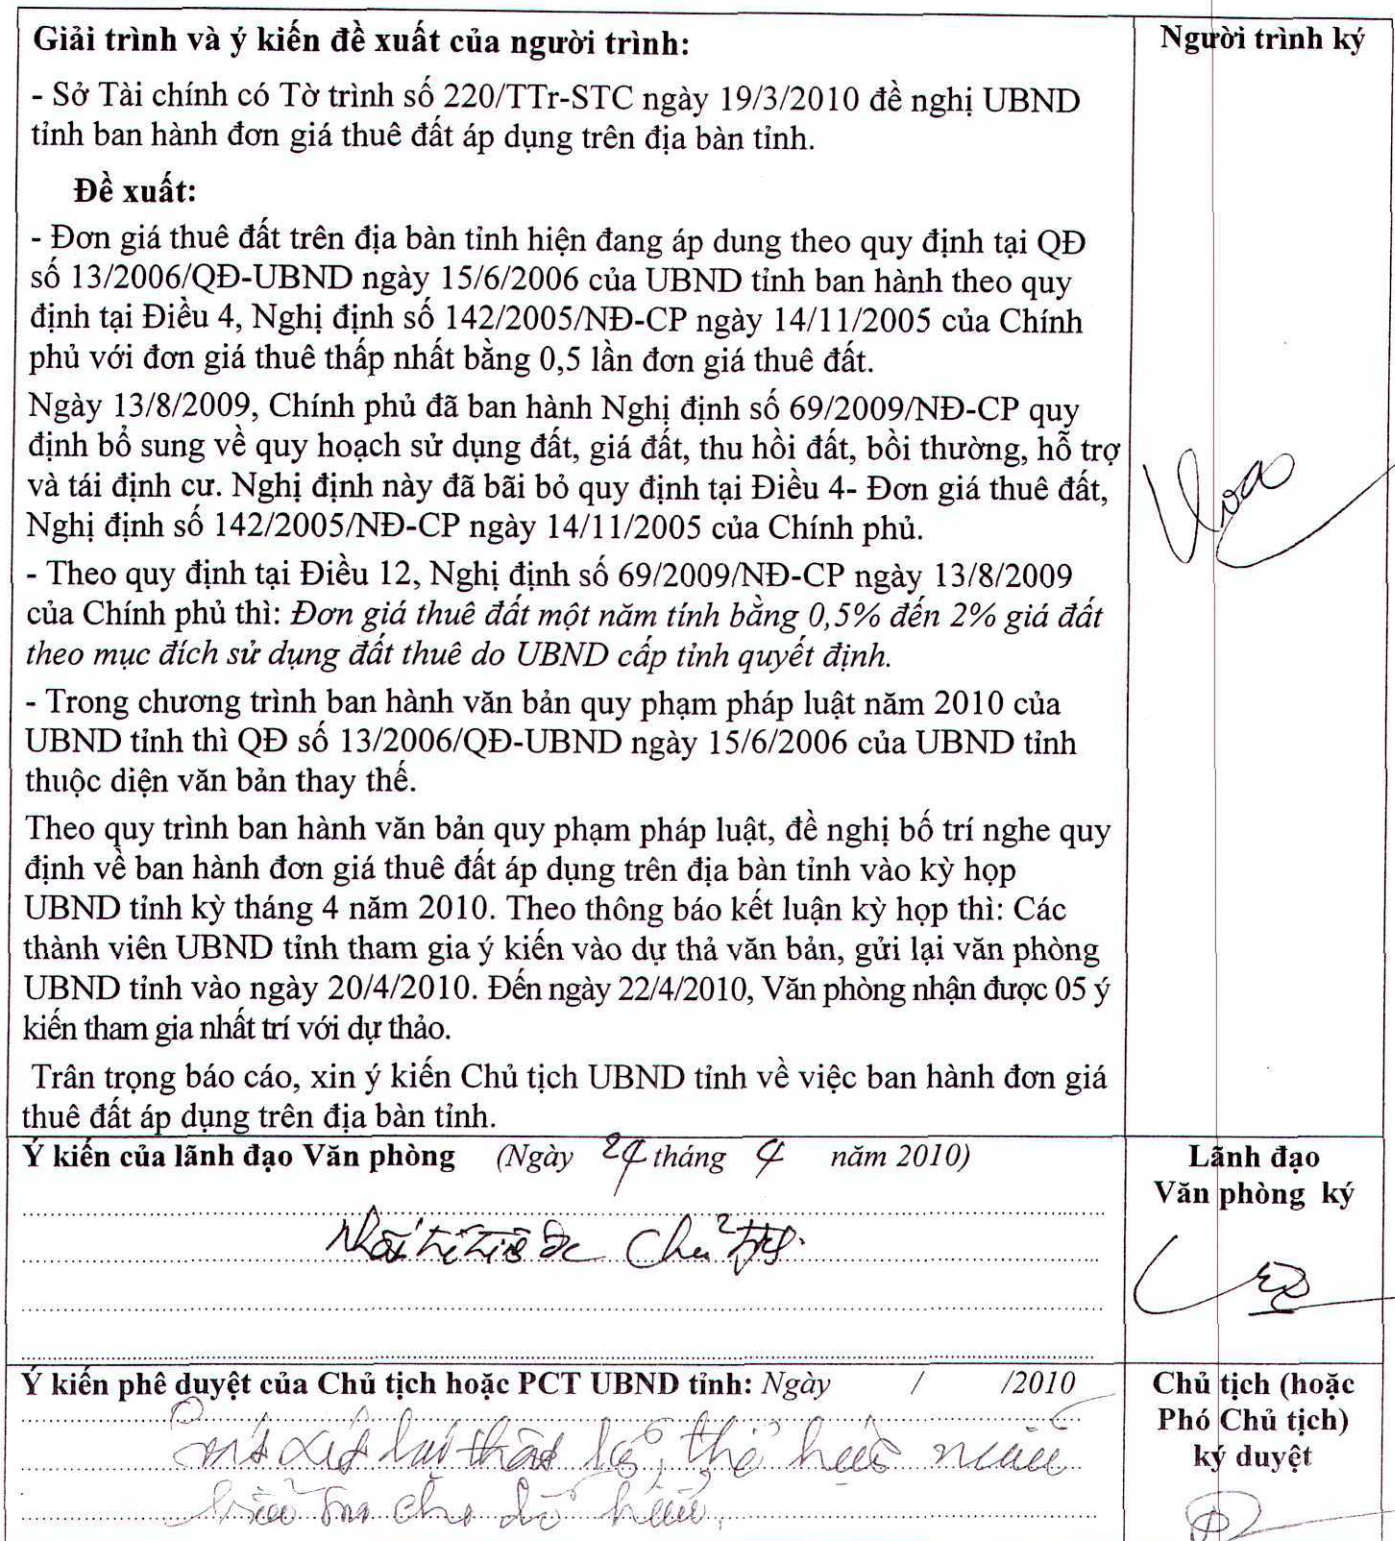 Giải trình và ý kiến đề xuất của người trình:
Người trình ký
- Sở Tài chính có Tờ trình số 220/TTr-STC ngày 19/3/2010 đề nghị UBND
tỉnh ban hành đơn giá thuê đất áp dụng trên địa bàn tỉnh.
Đề xuất:
- Đơn giá thuê đất trên địa bàn tỉnh hiện đang áp dung theo quy định tại QĐ
số 13/2006/QĐ-UBND ngày 15/6/2006 của UBND tỉnh ban hành theo quy
định tại Điều 4, Nghị định số 142/2005/NĐ-CP ngày 14/11/2005 của Chính
phủ với đơn giá thuê thấp nhất bằng 0,5 lần đơn giá thuê đất.
Ngày 13/8/2009, Chính phủ đã ban hành Nghị định số 69/2009/NĐ-CP quy
định bổ sung về quy hoạch sử dụng đất, giá đất, thu hồi đất, bồi thường, hỗ trợ
và tái định cư. Nghị định này đã bãi bỏ quy định tại Điều 4- Đơn giá thuê đất,
Nghị định số 142/2005/NĐ-CP ngày 14/11/2005 của Chính phủ.
- Theo quy định tại Điều 12, Nghị định số 69/2009/NĐ-CP ngày 13/8/2009
của Chính phủ thì: Đơn giá thuê đất một năm tính bằng 0,5% đến 2% giá đất
theo mục đích sử dụng đất thuê do UBND cấp tỉnh quyết định.
- Trong chương trình ban hành văn bản quy phạm pháp luật năm 2010 của
UBND tỉnh thì QĐ số 13/2006/QĐ-UBND ngày 15/6/2006 của UBND tỉnh
thuộc diện văn bản thay thế.
Theo quy trình ban hành văn bản quy phạm pháp luật, đề nghị bố trí nghe quy
định về ban hành đơn giá thuê đất áp dụng trên địa bàn tỉnh vào kỳ họp
UBND tỉnh kỳ tháng 4 năm 2010. Theo thông báo kết luận kỳ họp thì: Các
thành viên UBND tỉnh tham gia ý kiến vào dự thả văn bản, gửi lại văn phòng
UBND tỉnh vào ngày 20/4/2010. Đến ngày 22/4/2010, Văn phòng nhận được 05 ý
kiến tham gia nhất trí với dự thảo.
Trân trọng báo cáo, xin ý kiến Chủ tịch UBND tỉnh về việc ban hành đơn giá
thuê đất áp dụng trên địa bàn tỉnh.
Ý kiến của lãnh đạo Văn phòng (Ngày tháng 4 năm 2010)
Lãnh đạo
Văn phòng ký
Chủ
Ý kiến phê duyệt của Chủ tịch hoặc PCT UBND tỉnh: Ngày / /2010
Chủ tịch (hoặc
Phó Chủ tịch)
ký duyệt